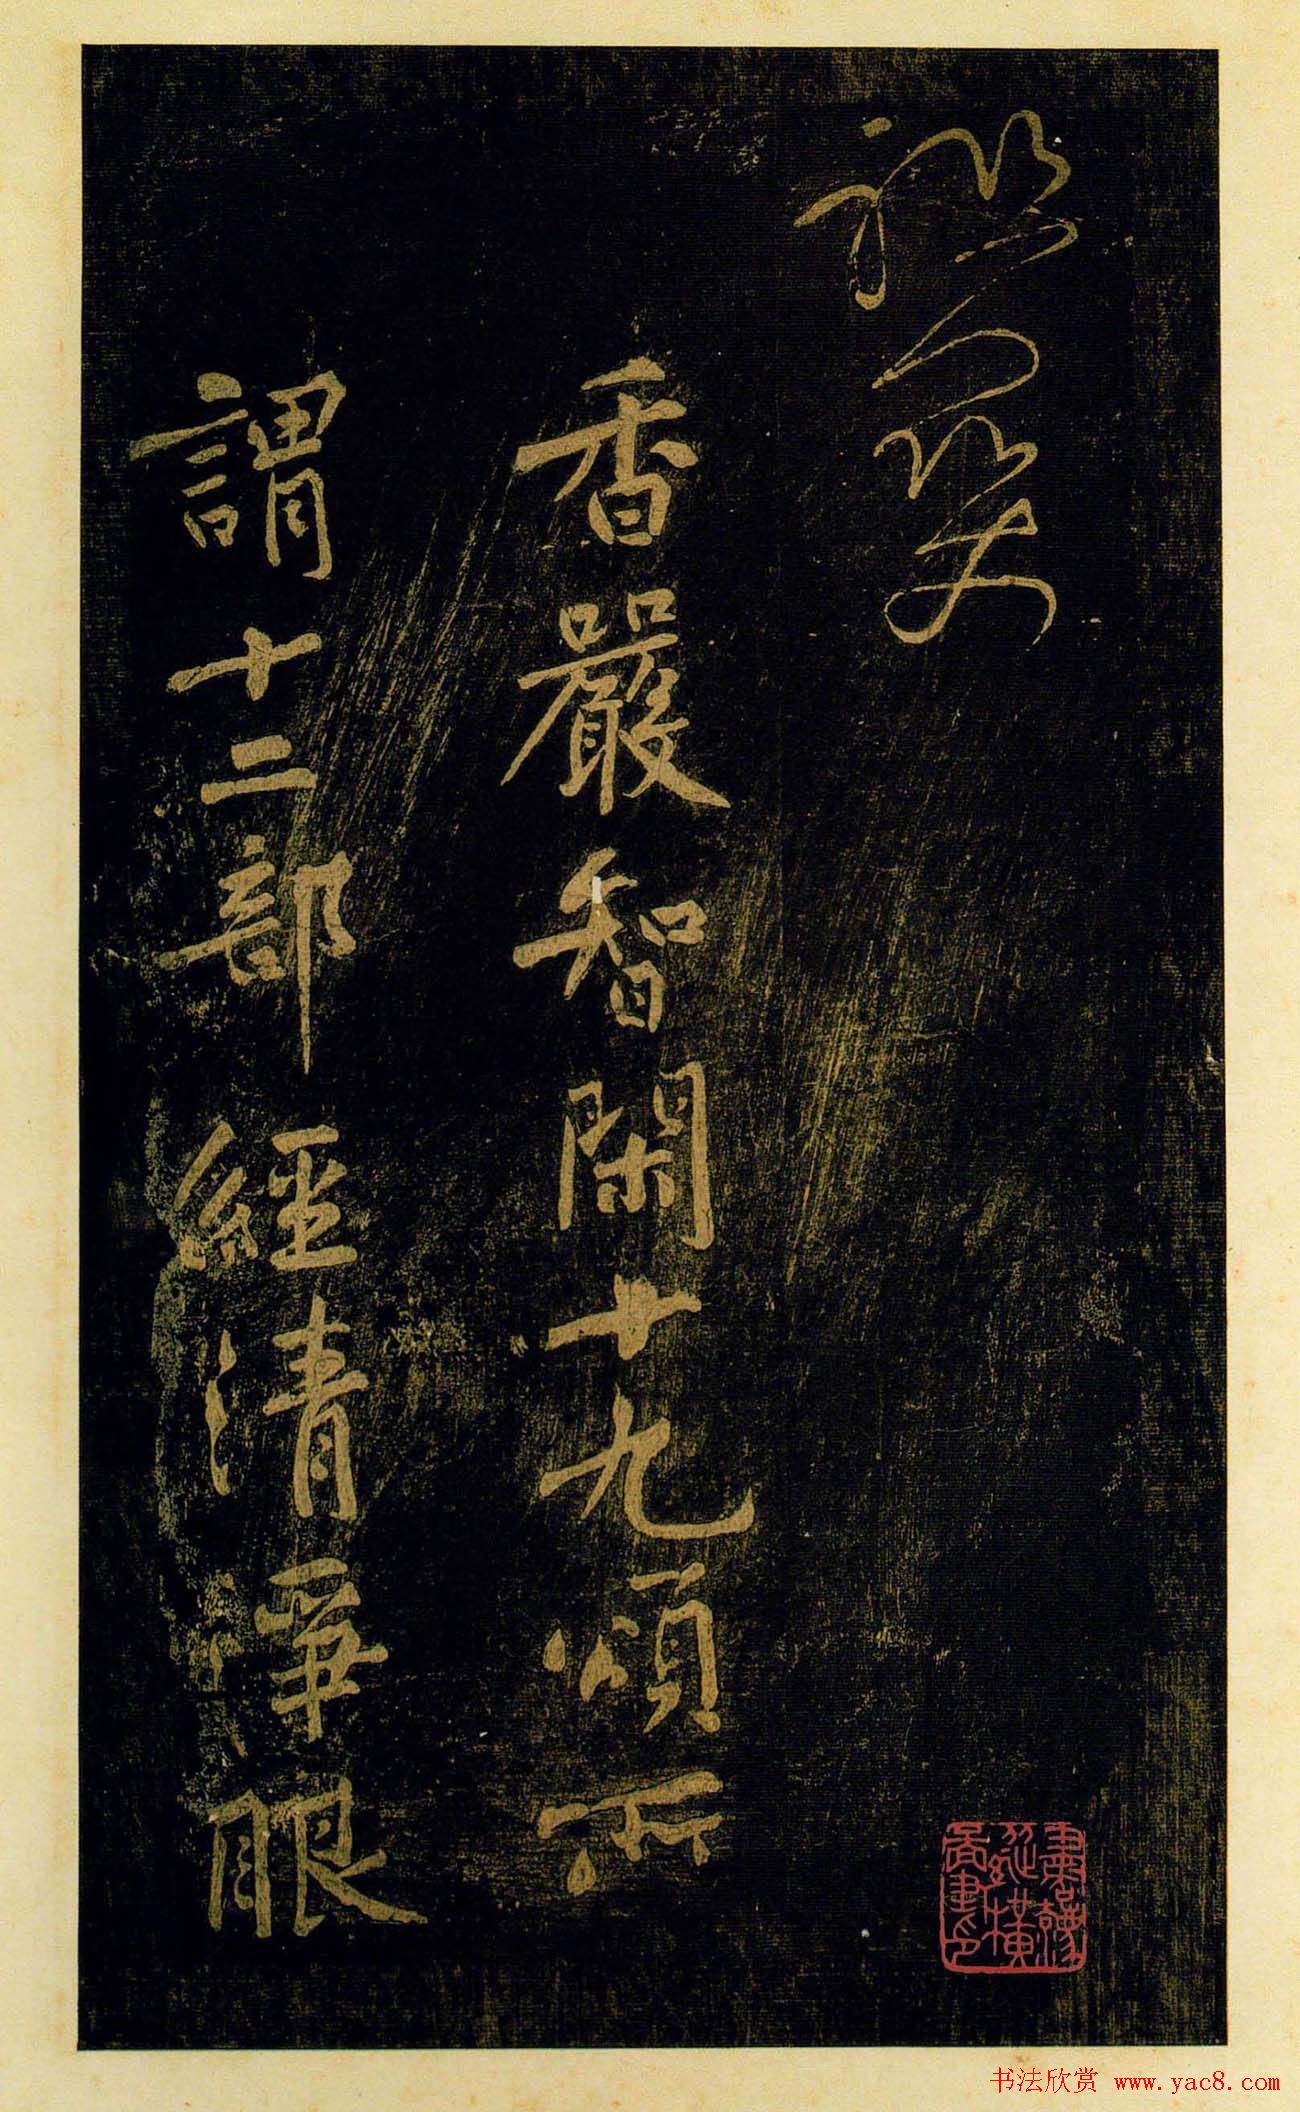 香嚴智閑十九頌所
謂十二部經清淨眼
书法欣赏 www.yac8.com